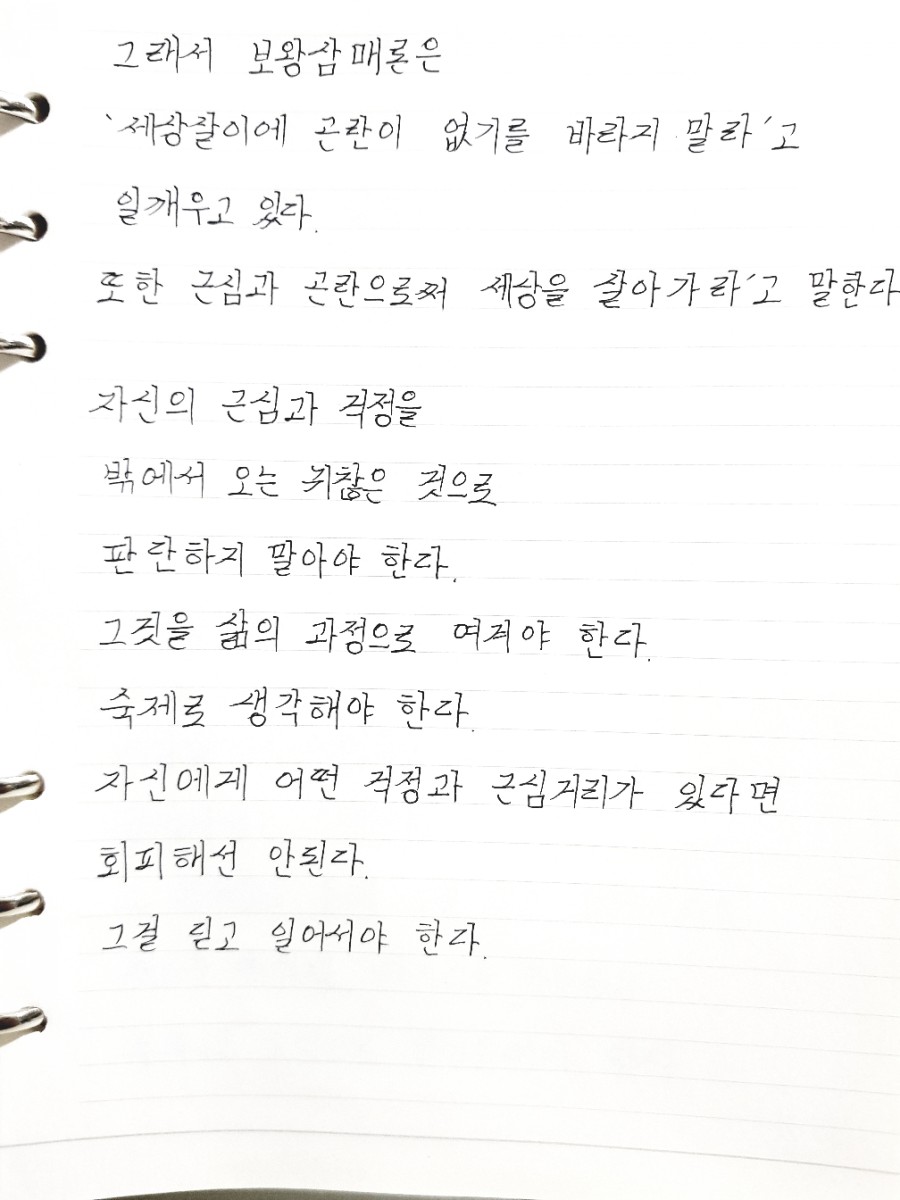 그래서 보왕삼매론은
'세상살이에 곤란이 없기를 바라지 말라'고
일깨우고 있다.
또한 근심과 곤란으로써 세상을 살아가라'고 말한다
자신의 근심과 걱정을
밖에서 오는 귀찮은 것으로
판단하지 말아야 한다.
그것을 삶의 과정으로 여겨야 한다.
숙제로 생각해야 한다.
자신에게 어떤 걱정과 근심거리가 있다면
회피해선 안된다.
그걸 딛고 일어서야 한다.